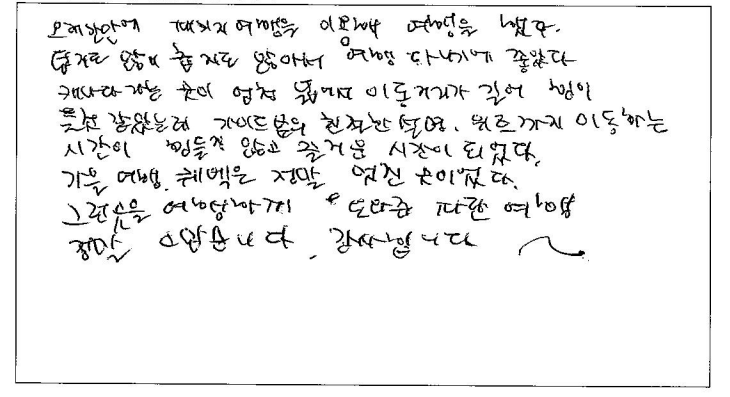 오래간만에 패키지여행을 이용해 여행을 했다.
덥지도 않고 춥지도 않아서 여행 다니기에 좋았다
캐나다 라는 곳이 엄청 넓어서 이동거리가 길어 힘이
들것 같았는데 가이드분의 친절한 설명, 뒤로까지 이동하는
시간이 힘들지 않고 즐거운 시간이 되었다.
가을 여행, 퀘백은 정말 멋진 곳이었다.
그런곳을 여행하게 도와준 파란 여행
정말 고맙습니다. 감사합니다